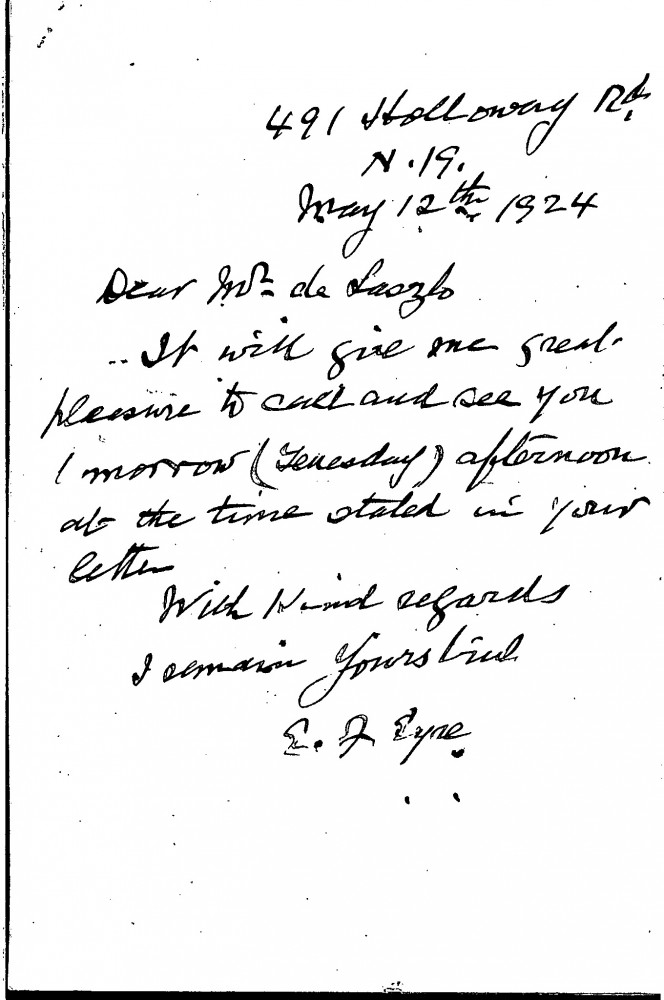 491 Holloway Rd.
N.19.
May 12th 1924
Dear Mr de Laszlo
It will give me great
pleasure to call and see you
tmorrow (Teuesday) afternoon
at the time stated in your
letter
With Kind regards
I remain Yours
E. F Eyre